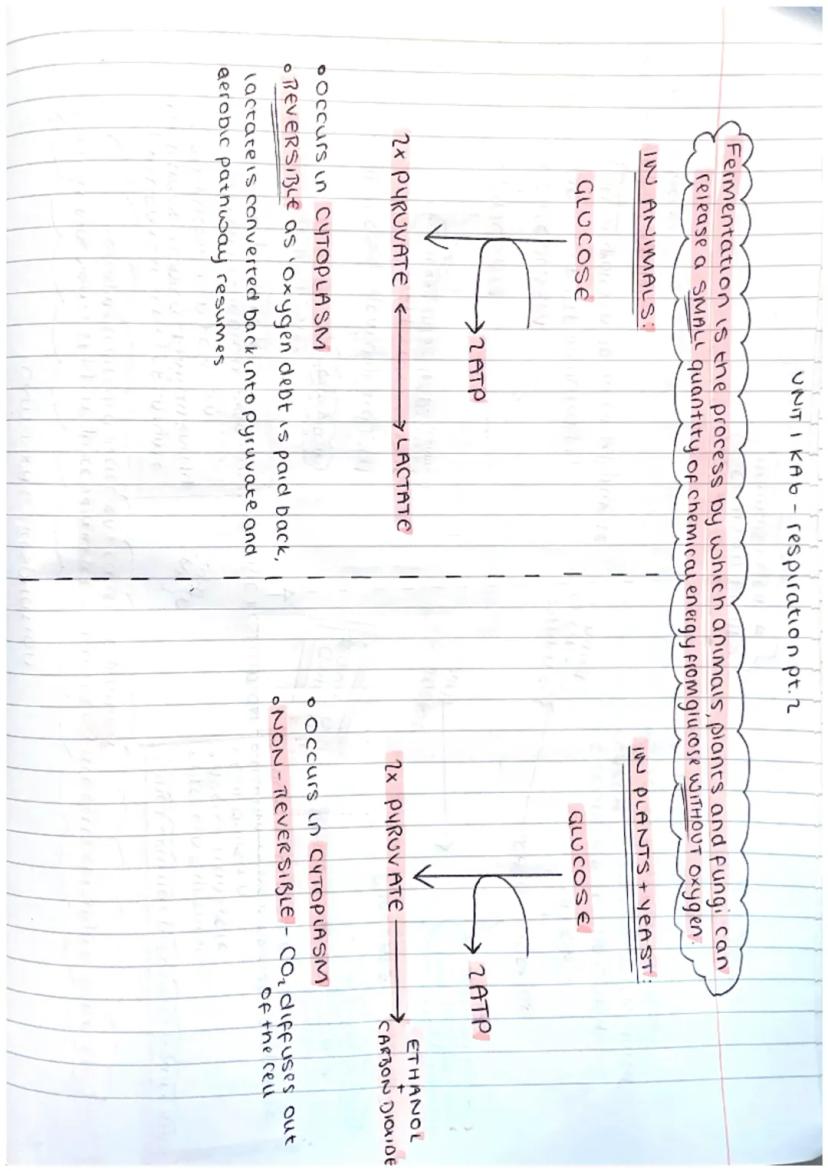 UNIT 1 KA6 - respiration pt. 2
Fermentation is the process by which animals, plants and fungi can
release a SMALL quantity of chemical energy from glucose WITHOUT oxygen.
IN ANIMALS:
GLUCOSE
2 ATP
2x PYRUVATE ⟷ LACTATE
• occurs in CYTOPLASM
• REVERSIBLE as 'oxygen debt is paid back,
lactate is converted back into pyruvate and
aerobic pathway resumes
IN PLANTS + YEAST:
GLUCOSE
2 ATP
2x PYRUVATE → ETHANOL
+
CARBON DIOXIDE
• occurs in CYTOPLASM
• NON-REVERSIBLE - CO₂ diffuses out
of the cell